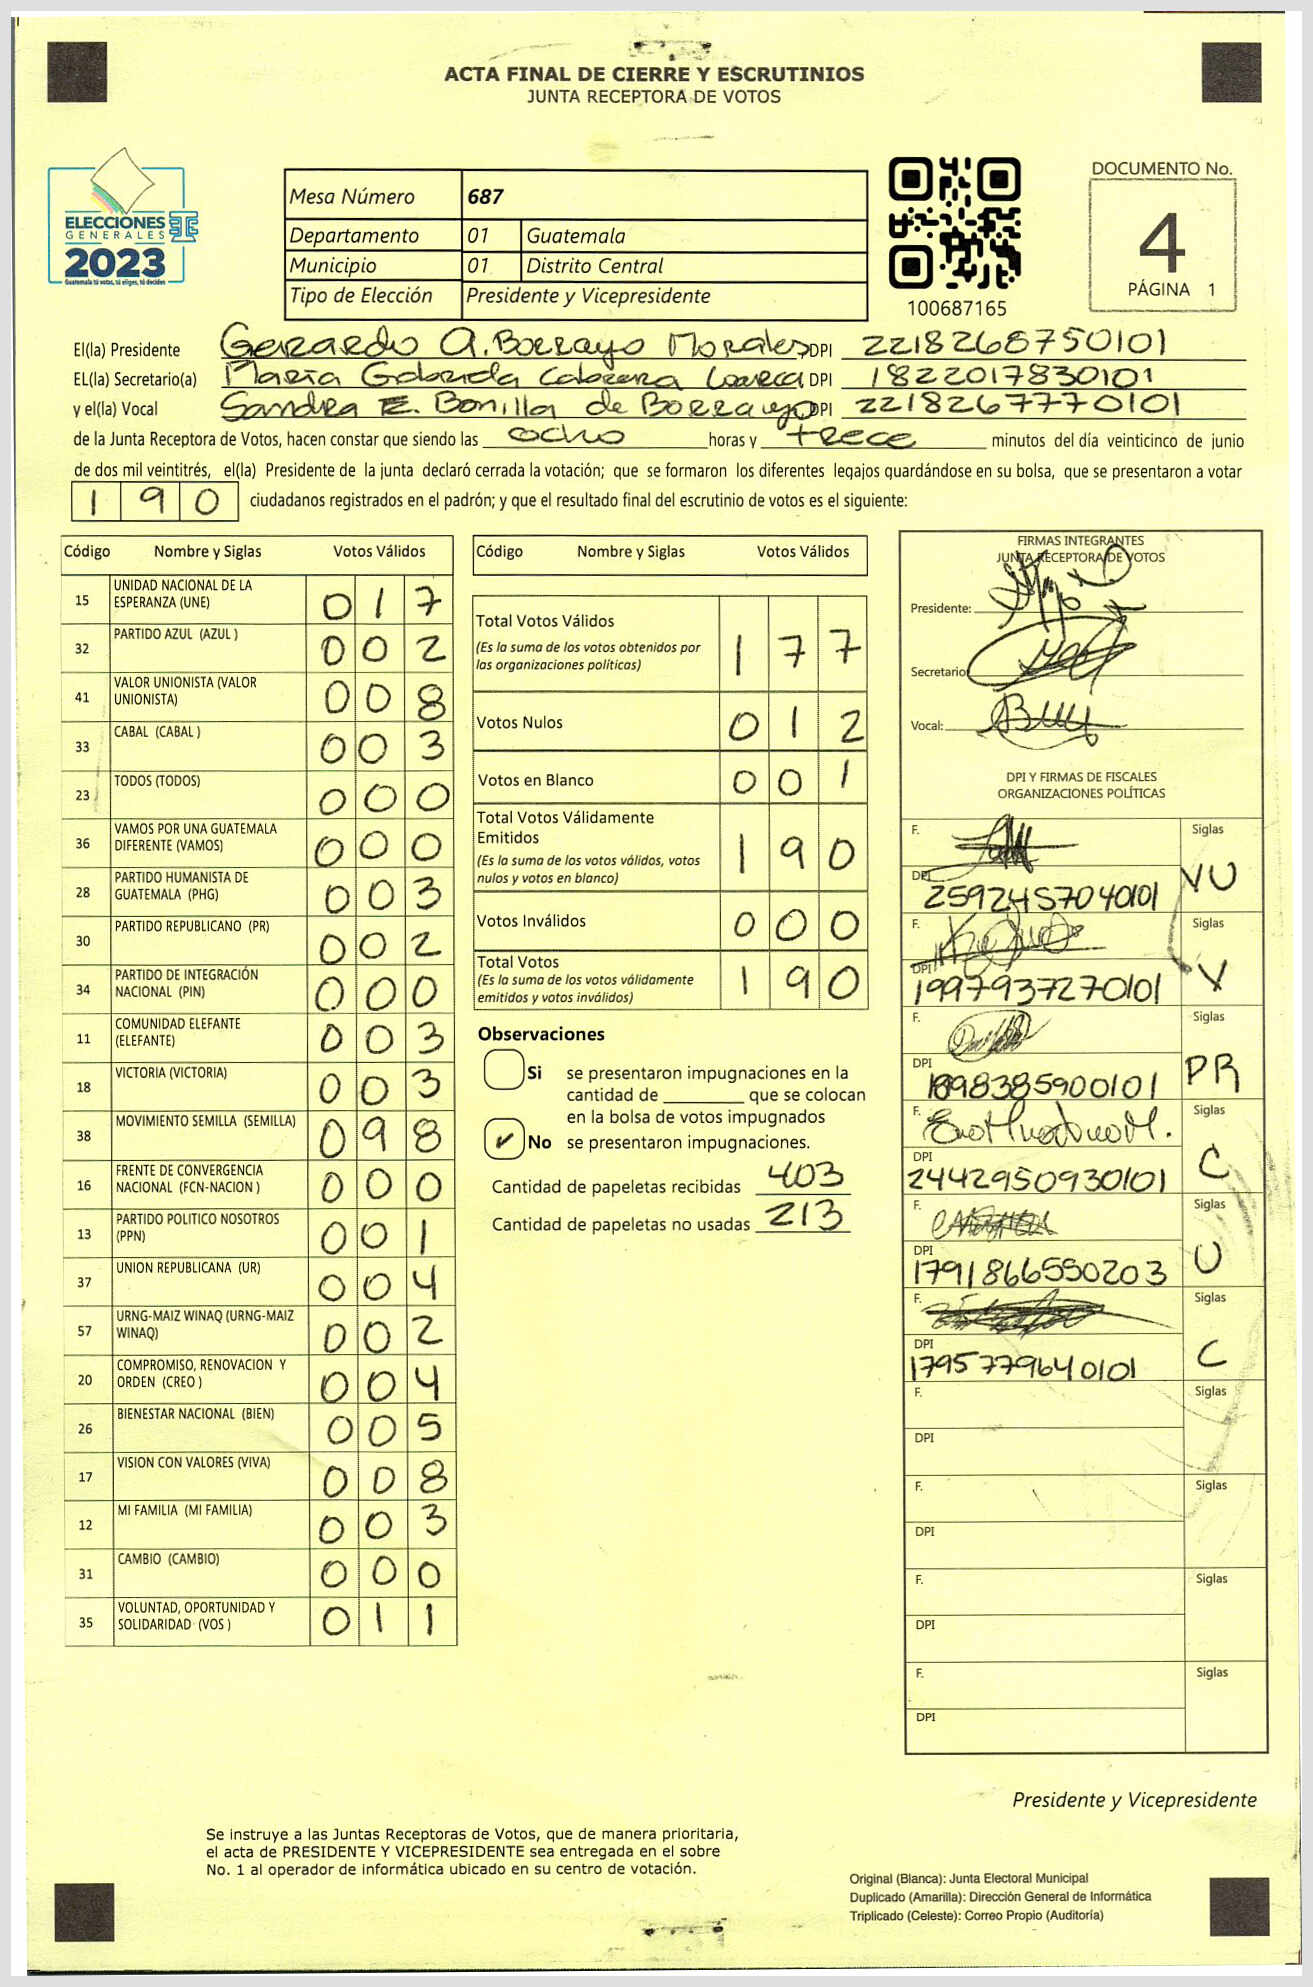 ACTA FINAL DE CIERRE Y ESCRUTINIOS
JUNTA RECEPTORA DE VOTOS
ELECCIONES
GENERALES
2023
Guatemala tú votas, tú eliges, tú decides
Mesa Número 687
Departamento 01 Guatemala
Municipio 01 Distrito Central
Tipo de Elección Presidente y Vicepresidente
100687165
DOCUMENTO No.
4
PÁGINA 1
El(la) Presidente Gerardo A. Borrayo Morales, DPI 2218268750101
EL(la) Secretario(a) María Gabriela Cabrera DPI 1822017830101
y el(la) Vocal Sandra E. Bonilla de Borrayo, DPI 2218267770101
de la Junta Receptora de Votos, hacen constar que siendo las ocho horas y trece minutos del día veinticinco de junio
de dos mil veintitrés, el(la) Presidente de la junta declaró cerrada la votación; que se formaron los diferentes legajos guardándose en su bolsa, que se presentaron a votar
190 ciudadanos registrados en el padrón; y que el resultado final del escrutinio de votos es el siguiente:
Código Nombre y Siglas Votos Válidos
15 UNIDAD NACIONAL DE LA ESPERANZA (UNE) 017
32 PARTIDO AZUL (AZUL ) 002
41 VALOR UNIONISTA (VALOR UNIONISTA) 008
33 CABAL (CABAL ) 003
23 TODOS (TODOS) 000
36 VAMOS POR UNA GUATEMALA DIFERENTE (VAMOS) 000
28 PARTIDO HUMANISTA DE GUATEMALA (PHG) 003
30 PARTIDO REPUBLICANO (PR) 002
34 PARTIDO DE INTEGRACIÓN NACIONAL (PIN) 000
11 COMUNIDAD ELEFANTE (ELEFANTE) 003
18 VICTORIA (VICTORIA) 003
38 MOVIMIENTO SEMILLA (SEMILLA) 098
16 FRENTE DE CONVERGENCIA NACIONAL (FCN-NACION ) 000
13 PARTIDO POLITICO NOSOTROS (PPN) 001
37 UNION REPUBLICANA (UR) 004
57 URNG-MAIZ WINAQ (URNG-MAIZ WINAQ) 002
20 COMPROMISO, RENOVACION Y ORDEN (CREO ) 004
26 BIENESTAR NACIONAL (BIEN) 005
17 VISION CON VALORES (VIVA) 008
12 MI FAMILIA (MI FAMILIA) 003
31 CAMBIO (CAMBIO) 000
35 VOLUNTAD, OPORTUNIDAD Y SOLIDARIDAD (VOS ) 011
Código Nombre y Siglas Votos Válidos
Total Votos Válidos 177
(Es la suma de los votos obtenidos por
las organizaciones políticas)
Votos Nulos 012
Votos en Blanco 001
Total Votos Válidamente
Emitidos 190
(Es la suma de los votos válidos, votos
nulos y votos en blanco)
Votos Inválidos 000
Total Votos 190
(Es la suma de los votos válidamente
emitidos y votos inválidos)
Observaciones
Si se presentaron impugnaciones en la
cantidad de ________ que se colocan
en la bolsa de votos impugnados
✓ No se presentaron impugnaciones.
Cantidad de papeletas recibidas 403
Cantidad de papeletas no usadas 213
FIRMAS INTEGRANTES
JUNTA RECEPTORA DE VOTOS
Presidente:
Secretario
Vocal:
DPI Y FIRMAS DE FISCALES
ORGANIZACIONES POLÍTICAS
F. Siglas
DPI 2592457040101 VU
F. Siglas
DPI 1997937270101 V
F. Siglas
DPI 1898385900101 PR
F. Siglas
DPI 2442950930101 C
F. Siglas
DPI 1791866550203 U
F. Siglas
DPI 1795779640101 C
F. Siglas
DPI
F. Siglas
DPI
F. Siglas
DPI
F. Siglas
DPI
Presidente y Vicepresidente
Se instruye a las Juntas Receptoras de Votos, que de manera prioritaria,
el acta de PRESIDENTE Y VICEPRESIDENTE sea entregada en el sobre
No. 1 al operador de informática ubicado en su centro de votación.
Original (Blanca): Junta Electoral Municipal
Duplicado (Amarilla): Dirección General de Informática
Triplicado (Celeste): Correo Propio (Auditoría)